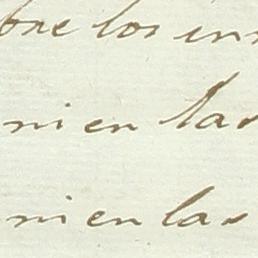 bre los in
ni en las
ni en las